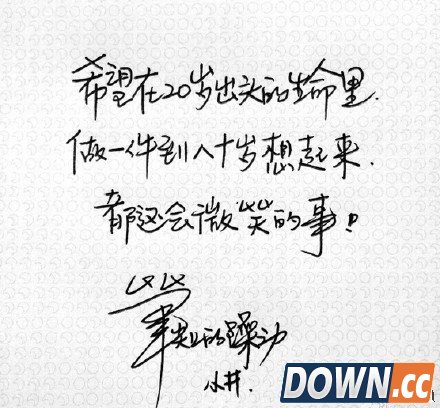 希望在20岁出头的生命里.
做一件到八十岁想起来.
都还会微笑的事!
的躁动
小井.
DOWN.cc